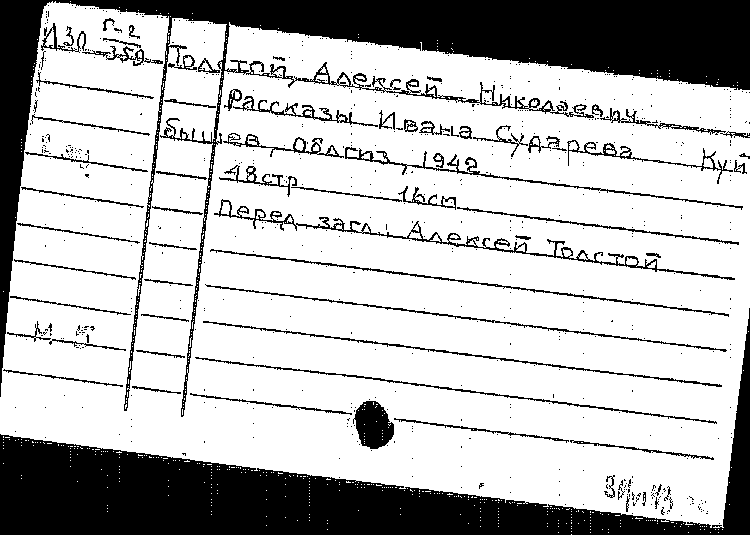 И30 Г-2
350
Толстой, Алексей Николаевич
Рассказы Ивана Сударева Куй
бышев, Облгиз, 1942
48стр 16см
Перед загл.: Алексей Толстой
М 5